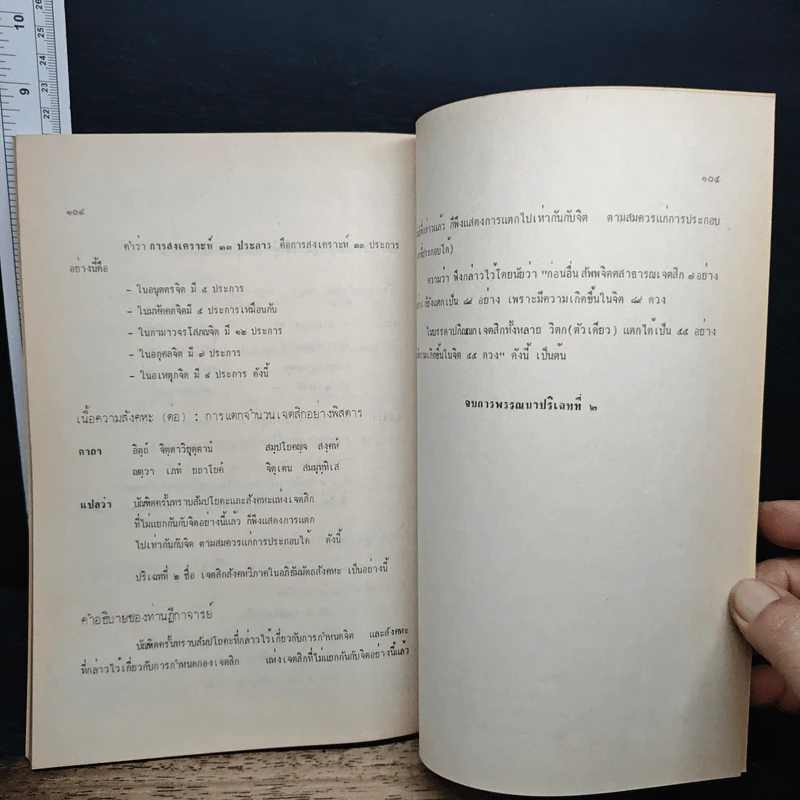 10
9
26
25
24
23
22
๑๐๔
คำว่า การสงเคราะห์ ๓๓ ประการ คือการสงเคราะห์ ๓๓ ประการ
อย่างนี้คือ
- ในอนุตตรจิต มี ๕ ประการ
- ในมหัคคตจิตมี ๕ ประการเหมือนกัน
- ในกามาวจรโสภณจิต มี ๑๒ ประการ
- ในอกุศลจิต มี ๗ ประการ
- ในอเหตุกจิต มี ๔ ประการ ดังนี้
เนื้อความสังคหะ (ต่อ) : การแตกจำนวนเจตสิกอย่างพิสดาร
คาถา อิตฺถํ จิตฺตาวิยุตฺตานํ สมฺปโยคญฺจ สงฺคหํ
ญตฺวา เภทํ ยถาโยคํ จิตฺเตน สมมุทฺทิเส
แปลว่า บัณฑิตครั้นทราบสัมปโยคะและสังคหะแห่งเจตสิก
ที่ไม่แยกกันกับจิตอย่างนี้แล้ว ก็พึงแสดงการแตก
ไปเท่ากันกับจิต ตามสมควรแก่การประกอบได้ ดังนี้
ปริเฉทที่ ๒ ชื่อ เจตสิกสังคหวิภาคในอภิธัมมัตถสังคหะ เป็นอย่างนี้
คำอธิบายของท่านฎีกาจารย์
บัณฑิตครั้นทราบสัมปโยคะที่กล่าวไว้เกี่ยวกับการกำหนดจิต และสังคหะ
ที่กล่าวไว้เกี่ยวกับการกำหนดกองเจตสิก แห่งเจตสิกที่ไม่แยกกันกับจิตอย่างนี้แล้ว
๑๐๕
แล้ว ก็พึงแสดงการแตกไปเท่ากันกับจิต ตามสมควรแก่การประกอบ
ที่ประกอบได้)
ความว่า พึงกล่าวไว้โดยนัยว่า "ก่อนอื่น สัพพจิตตสาธารณเจตสิก ๗ อย่าง
ก็ยังแตกเป็น ๘๙ อย่าง เพราะมีความเกิดขึ้นในจิต ๘๙ ดวง
ในบรรดาปกิณณกเจตสิกทั้งหลาย วิตก(ตัวเดียว) แตกได้เป็น ๕๕ อย่าง
ความเกิดขึ้นในจิต ๕๕ ดวง" ดังนี้ เป็นต้น
จบการพรรณนาปริเฉทที่ ๒